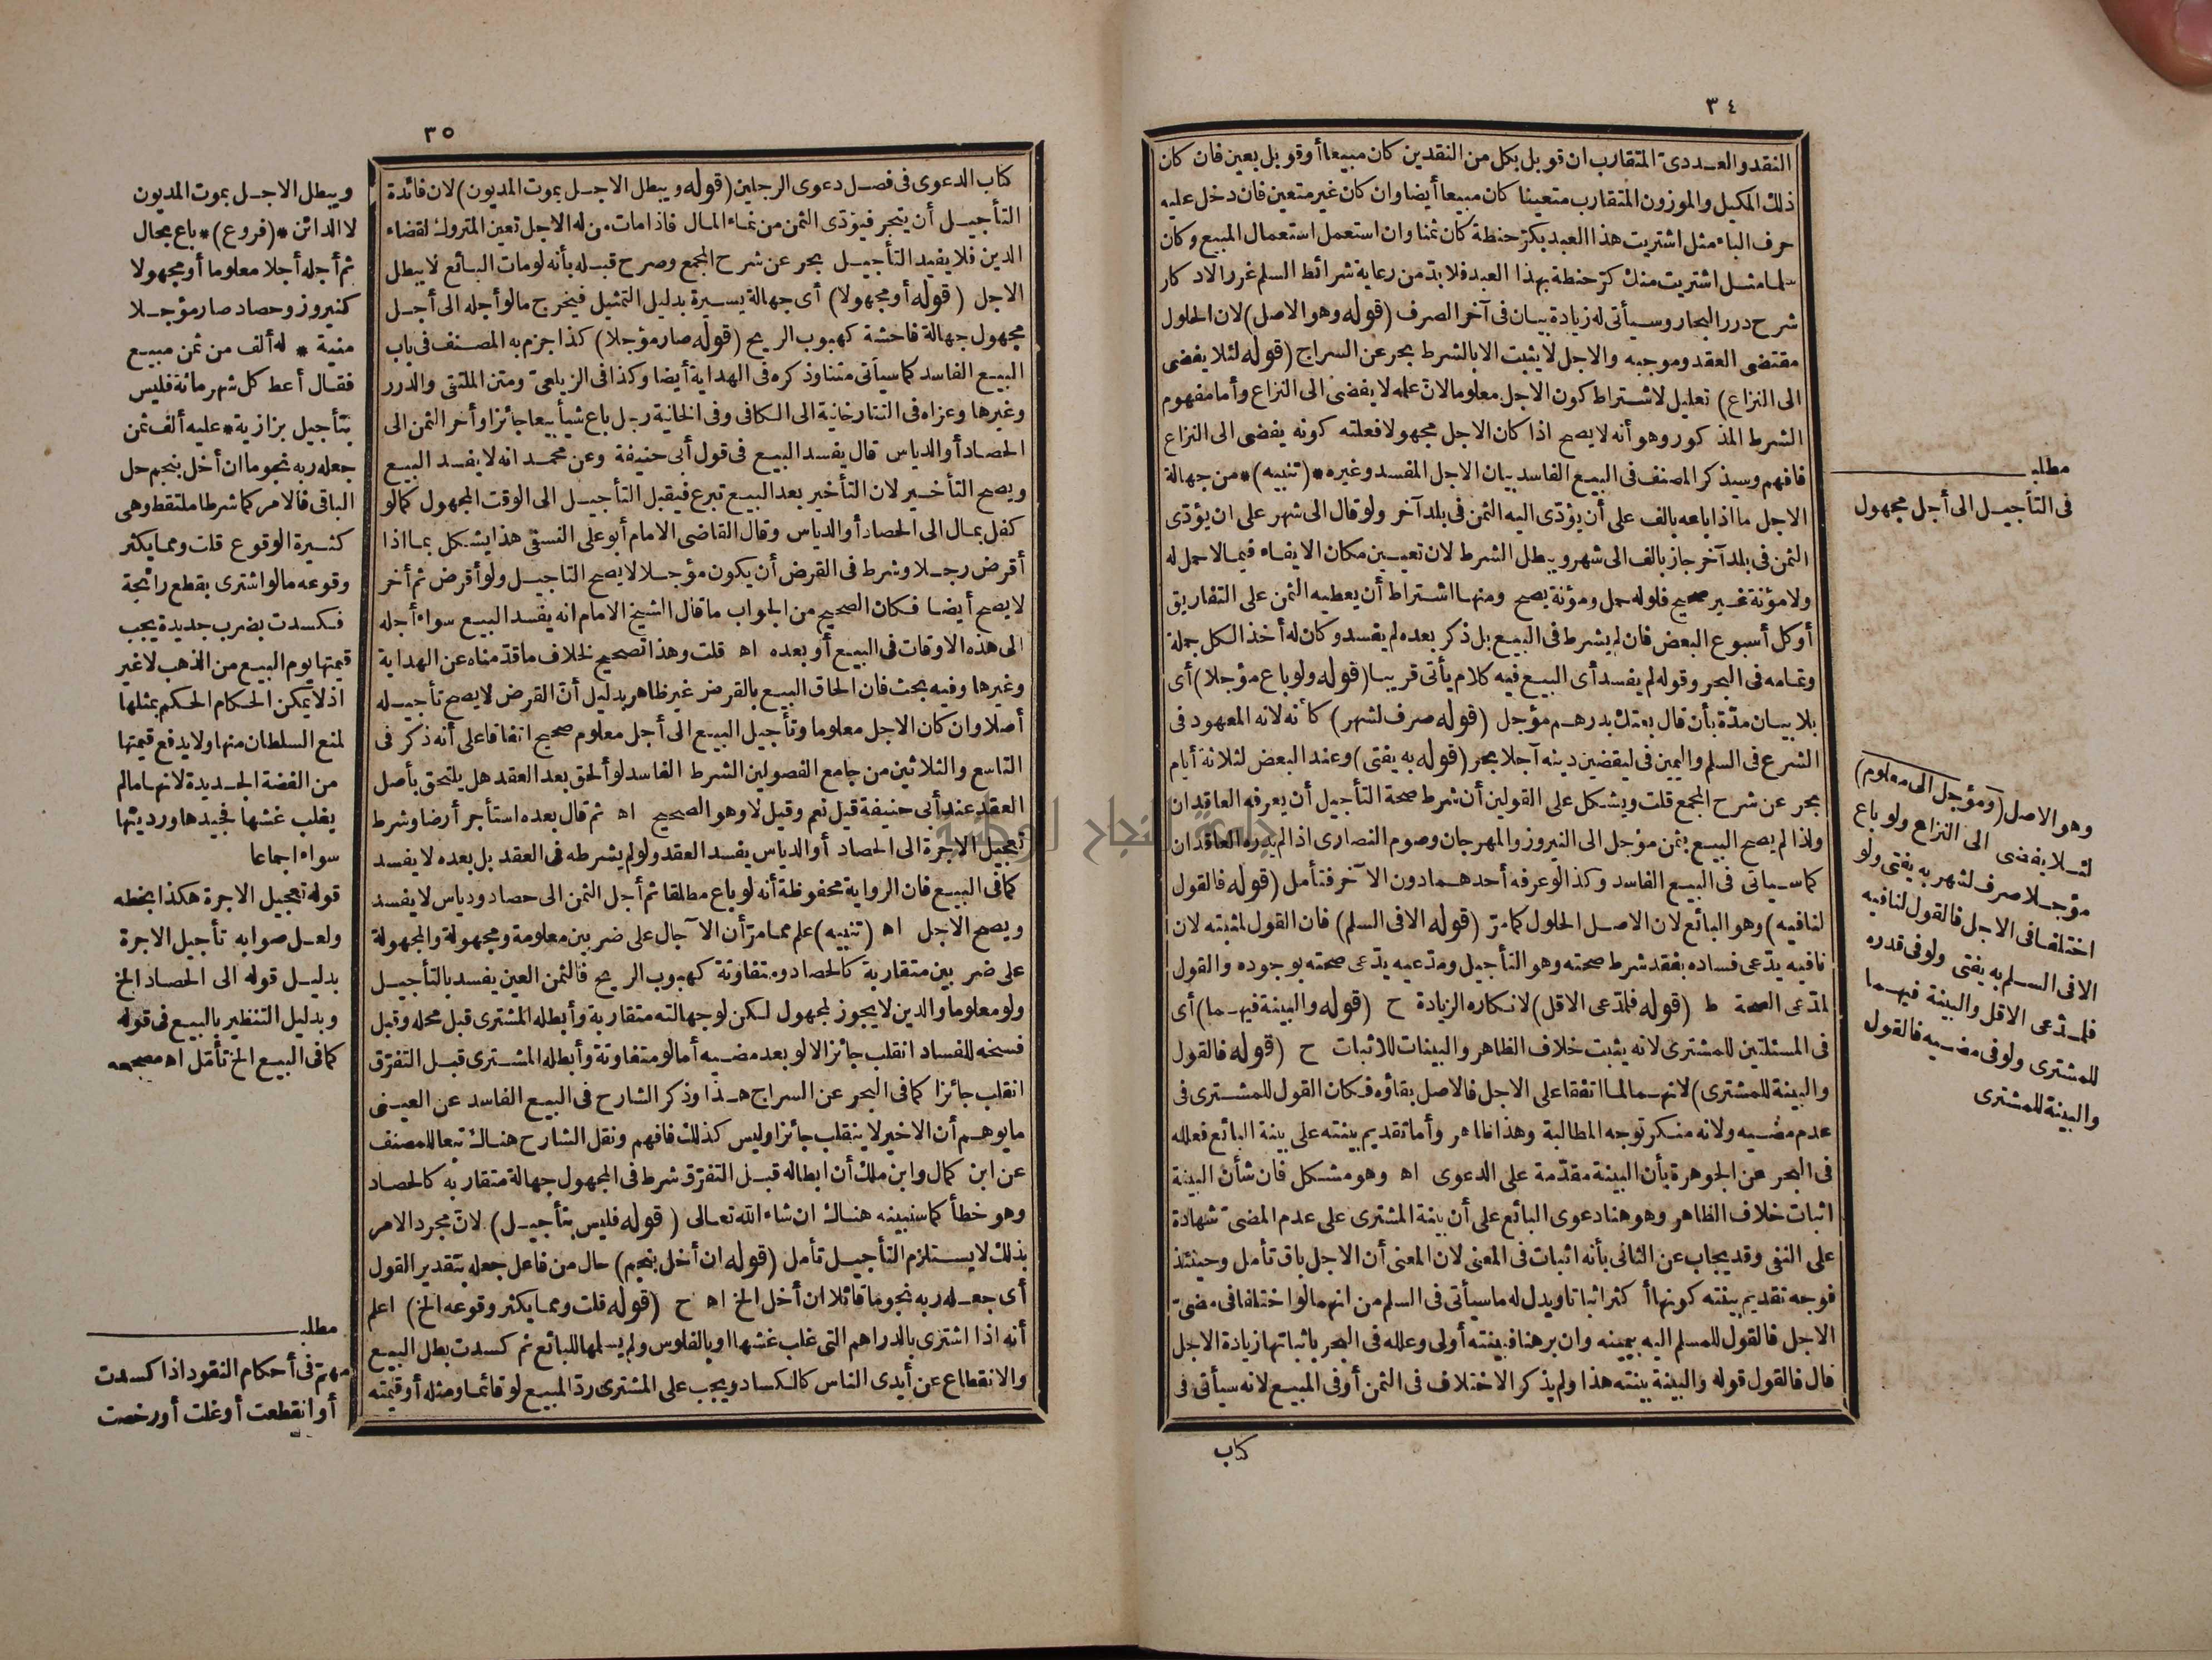 ٣٤
النقد والعددى المتقارب ان قوبل بكل من النقدين كان مبيعا أو قوبل بعين فان كان
ذلك المكيل والموزون المتقارب متعينا كان مبيعا أيضا وان كان غير متعين فان دخل عليه
حرف الباء مثل اشتريت هذا العبد بكرّ حنطة كان ثمنا وان استعمل استعمال المبيع وكان
سلما مثل اشتريت منك كرّ حنطة بهذا العبد فلا بدّ من رعاية شرائط السلم غرر الاذكار
شرح درر البحار وسيأتى له زيادة بيان فى آخر الصرف (قوله وهو الاصل) لان الحلول
مقتضى العقد وموجبه والاجل لا يثبت الا بالشرط بحر عن السراج (قوله لئلا يفضى
الى النزاع) تعليل لاشتراط كون الاجل معلوما لان علمه لا يفضى الى النزاع وأما مفهوم
الشرط المذكور وهو أنه لا يصح اذا كان الاجل مجهولا فعلته كونه يفضى الى النزاع
فافهم وسيذكر المصنف فى البيع الفاسد بيان الاجل المفسد وغيره *(تنبيه)* من جهالة
الاجل ما اذا باعه بالف على أن يؤدّى اليه الثمن فى بلد آخر ولو قال الى شهر على ان يؤدّى
الثمن فى بلد آخر جاز بالف الى شهر ويبطل الشرط لان تعيين مكان الايفاء فيما لا حمل له
ولا مؤنة غير صحيح فلوله حمل ومؤنة يصح ومنها اشتراط أن يعطيه الثمن على التفاريق
أو كل أسبوع البعض فان لم يشرط فى البيع بل ذكر بعده لم يفسد وكان له أخذ الكل جملة
وتمامه فى البحر وقوله لم يفسد أى البيع فيه كلام يأتى قريبا (قوله ولو باع مؤجلا) أى
بلا بيان مدّة بأن قال بعتك بدرهم مؤجل (قوله صرف لشهر) كأنه لانه المعهود فى
الشرع فى السلم واليمين فى ليقضين دينه آجلا بحر (قوله به يفتى) وعند البعض لثلاثة أيام
بحر عن شرح المجمع قلت ويشكل على القولين أن شرط صحة التأجيل أن يعرفه العاقدان
ولذا لم يصح البيع بثمن مؤجل الى النيروز والمهرجان وصوم النصارى اذا لم يدره العاقدان
كما سيأتى فى البيع الفاسد وكذا لو عرفه أحدهما دون الآخر فتأمل (قوله فالقول
لنافيه) وهو البائع لان الاصل الحلول كما مرّ (قوله الا فى السلم) فان القول لمثبته لان
نافيه يدّعى فساده بفقد شرط صحته وهو التأجيل ومدّعيه يدّعى صحته بوجوده والقول
لمدّعى الصحة ط (قوله فلمدّعى الاقل) لانكاره الزيادة ح (قوله والبينة فيهما) أى
فى المسئلتين للمشترى لانه يثبت خلاف الظاهر والبينات للاثبات ح (قوله فالقول
والبينة للمشترى) لانهما لما اتفقا على الاجل فالاصل بقاؤه فكان القول للمشترى فى
عدم مضيه ولانه منكر توجه المطالبة وهذا ظاهر وأما تقديم بينته على بينة البائع فعلله
فى البحر عن الجوهرة بأن البينة مقدّمة على الدعوى اه وهو مشكل فان شأن البينة
اثبات خلاف الظاهر وهو هنا دعوى البائع على أن بينة المشترى على عدم المضىّ شهادة
على النفى وقد يجاب عن الثانى بأنه اثبات فى المعنى لان المعنى أن الاجل باق تأمل وحينئذ
فوجه تقديم بينته كونها أكثر اثباتا ويدل له ما سيأتى فى السلم من انهما لو اختلفا فى مضىّ
الاجل فالقول للمسلم اليه بيمينه وان برهنا فبينته أولى وعلله فى البحر باثباتها زيادة الاجل
قال فالقول قوله والبينة بينته هذا ولم يذكر الاختلاف فى الثمن أو فى المبيع لانه سيأتى فى
كتاب
مطلب
فى التأجيل الى أجل مجهول
وهو الاصل (ومؤجل الى معلوم)
لئلا يفضى الى النزاع ولو باع
مؤجلا صرف لشهر به يفتى ولو
اختلفا فى الاجل فالقول لنافيه
الا فى السلم به يفتى ولو فى قدره
فلمدّعى الاقل والبينة فيهما
للمشترى ولو فى مضيه فالقول
والبينة للمشترى
٣٥
كتاب الدعوى فى فصل دعوى الرجلين (قوله ويبطل الاجل بموت المديون) لان فائدة
التأجيل أن يتجر فيؤدّى الثمن من نماء المال فاذا مات من له الاجل تعين المتروك لقضاء
الدين فلا يفيد التأجيل بحر عن شرح المجمع وصرح قبله بأنه لو مات البائع لا يبطل
الاجل (قوله أو مجهولا) أى جهالة يسيرة بدليل التمثيل فيخرج ما لو أجله الى أجل
مجهول جهالة فاحشة كهبوب الريح (قوله صار مؤجلا) كذا جزم به المصنف فى باب
البيع الفاسد كما سيأتى متنا وذكره فى الهداية أيضا وكذا فى الزيلعىّ ومتن الملتقى والدرر
وغيرها وعزاه فى التتارخانية الى الكافى وفى الخانية رجل باع شيأ بيعا جائزا وأخر الثمن الى
الحصاد أو الدياس قال يفسد البيع فى قول أبى حنيفة وعن محمد انه لا يفسد البيع
ويصح التأخير لان التأخير بعد البيع تبرع فيقبل التأجيل الى الوقت المجهول كما لو
كفل بمال الى الحصاد أو الدياس وقال القاضى الامام أبو على النسفى هذا يشكل بما اذا
أقرض رجلا وشرط فى القرض أن يكون مؤجلا لا يصح التاجيل ولو أقرض ثم أخر
لا يصح أيضا فكان الصحيح من الجواب ما قال الشيخ الامام انه يفسد البيع سواء أجله
الى هذه الاوقات فى البيع أو بعده اه قلت وهذا تصحيح لخلاف ما قدّمناه عن الهداية
وغيرها وفيه بحث فان الحاق البيع بالقرض غير ظاهر بدليل أن القرض لا يصح تأجيله
أصلا وان كان الاجل معلوما وتأجيل البيع الى أجل معلوم صحيح اتفاقا على أنه ذكر فى
التاسع والثلاثين من جامع الفصولين الشرط الفاسد لو ألحق بعد العقد هل يلتحق بأصل
العقد عند أبى حنيفة قيل نعم وقيل لا وهو الصحيح اه ثم قال بعده استأجر أرضا وشرط
تعجيل الاجرة الى الحصاد أو الدياس يفسد العقد ولو لم يشرطه فى العقد بل بعده لا يفسد
كما فى البيع فان الرواية محفوظة أنه لو باع مطلقا ثم أجل الثمن الى حصاد ودياس لا يفسد
ويصح الاجل اه (تنبيه) علم مما مرّ أن الآجال على ضربين معلومة ومجهولة والمجهولة
على ضربين متقاربة كالحصاد ومتفاوتة كهبوب الريح فالثمن العين يفسد بالتأجيل
ولو معلوما والدين لا يجوز لمجهول لكن لو جهالته متقاربة وأبطله المشترى قبل محله وقبل
فسخه للفساد انقلب جائزا لا لو بعد مضيه أما لو متفاوتة وأبطله المشترى قبل التفرّق
انقلب جائزا كما فى البحر عن السراج هذا وذكر الشارح فى البيع الفاسد عن العينى
ما يوهم أن الاخير لا ينقلب جائزا وليس كذلك فافهم ونقل الشارح هناك تبعا للمصنف
عن ابن كمال وابن ملك أن ابطاله قبل التفرّق شرط فى المجهول جهالة متقاربة كالحصاد
وهو خطأ كما سنبينه هناك ان شاء الله تعالى (قوله فليس بتأجيل) لانّ مجرد الامر
بذلك لا يستلزم التأجيل تأمل (قوله ان أخل بنجم) حال من فاعل جعله بتقدير القول
أى جعله ربه نجوما قائلا ان أخل الخ اه ح (قوله قلت ومما يكثر وقوعه الخ) اعلم
أنه اذا اشترى بالدراهم التى غلب غشها او بالفلوس ولم يسلمها للبائع ثم كسدت بطل البيع
والانقطاع عن أيدى الناس كالكساد ويجب على المشترى ردّ المبيع لو قائما ومثله أو قيمته
ويبطل الاجل بموت المديون
لا الدائن *(فروع)* باع بحال
ثم أجله أجلا معلوما أو مجهولا
كنيروز وحصاد صار مؤجلا
منية * له ألف من ثمن مبيع
فقال أعط كل شهر مائة فليس
بتأجيل بزازية * عليه ألف ثمن
جعله ربه نجوما ان أخل بنجم حل
الباقى فالامر كما شرطا ملتقط وهى
كثيرة الوقوع قلت ومما يكثر
وقوعه ما لو اشترى بقطع رائجة
فكسدت بضرب جديدة يجب
قيمتها يوم البيع من الذهب لا غير
اذ لا يمكن الحكام الحكم بمثلها
لمنع السلطان منها ولا يدفع قيمتها
من الفضة الجديدة لانها ما لم
يغلب غشها فجيدها ورديئها
سواء اجماعا
قوله تعجيل الاجرة هكذا بخطه
ولعل صوابه تأجيل الاجرة
بدليل قوله الى الحصاد الخ
وبدليل التنظير بالبيع فى قوله
كما فى البيع الخ تأمل اه مصححه
مطلب
مهمّ فى أحكام النقود اذا كسدت
أو انقطعت أو غلت أو رخصت
جامعة النجاح الوطنية